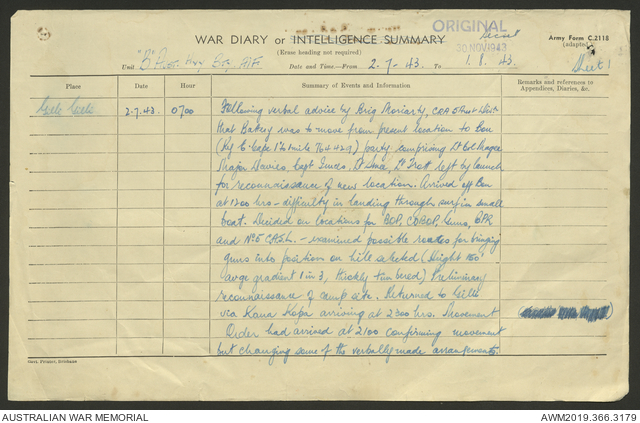 ORIGINAL
WAR DIARY or INTELLIGENCE SUMMARY
Secret
Army Form C.2118
(Erase heading not required)
30 NOV 1943
(adapted)
Unit "B" Aust. Hvy Bty, AIF. Date and Time—From 2.7.43. To 1.8.43. Sheet 1
Place Date Hour Summary of Events and Information Remarks and references to Appendices, Diaries, &c.
Gili Gili 2.7.43. 0700 Following verbal advice by Brig Moriarty, CRA 5 Aust Div
that Battery was to move from present location to Bou
(Ref C. Cape 1" to 1 mile 764429) party comprising Lt Col
Major Davies, Capt Lt Lt Trott left by launch
for reconnaissance of new location. Arrived off Bou
at 1200 hrs – difficulty in landing through surf in small
boat. Decided on locations for BOP, CDBOP, Guns, BPR
and No 5 CASL. – examined possible routes for bringing
guns into position on hill selected (Height 150'
avge gradient 1 in 3, thickly timbered) Preliminary
reconnaissance of camp site. Returned to Gili
via Kana Kopa arriving at 2300 hrs. Movement
Order had arrived at 2100 confirming movement
but changing some of the verbally made arrangements.
Govt. Printer, Brisbane
AUSTRALIAN WAR MEMORIAL
AWM2019.366.3179